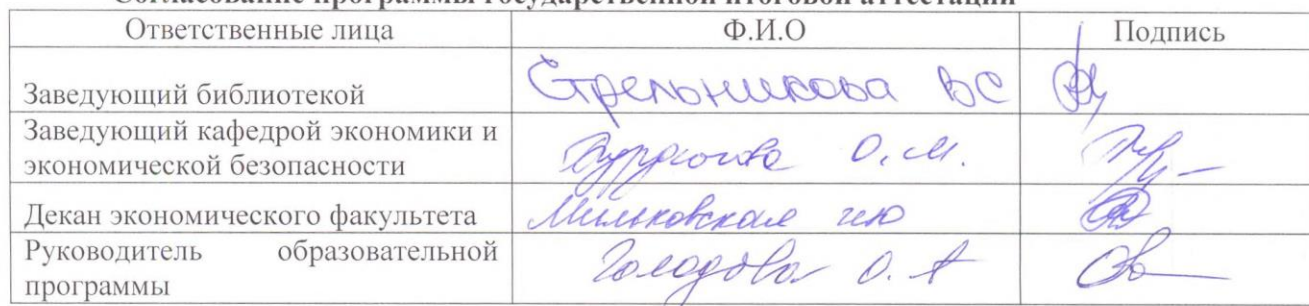 Согласование программы государственной итоговой аттестации
Ответственные лица Ф.И.О Подпись
Заведующий библиотекой Стрельникова ВС
Заведующий кафедрой экономики и
экономической безопасности О.М.
Декан экономического факультета Мильковская
Руководитель образовательной
программы Голодова О.А